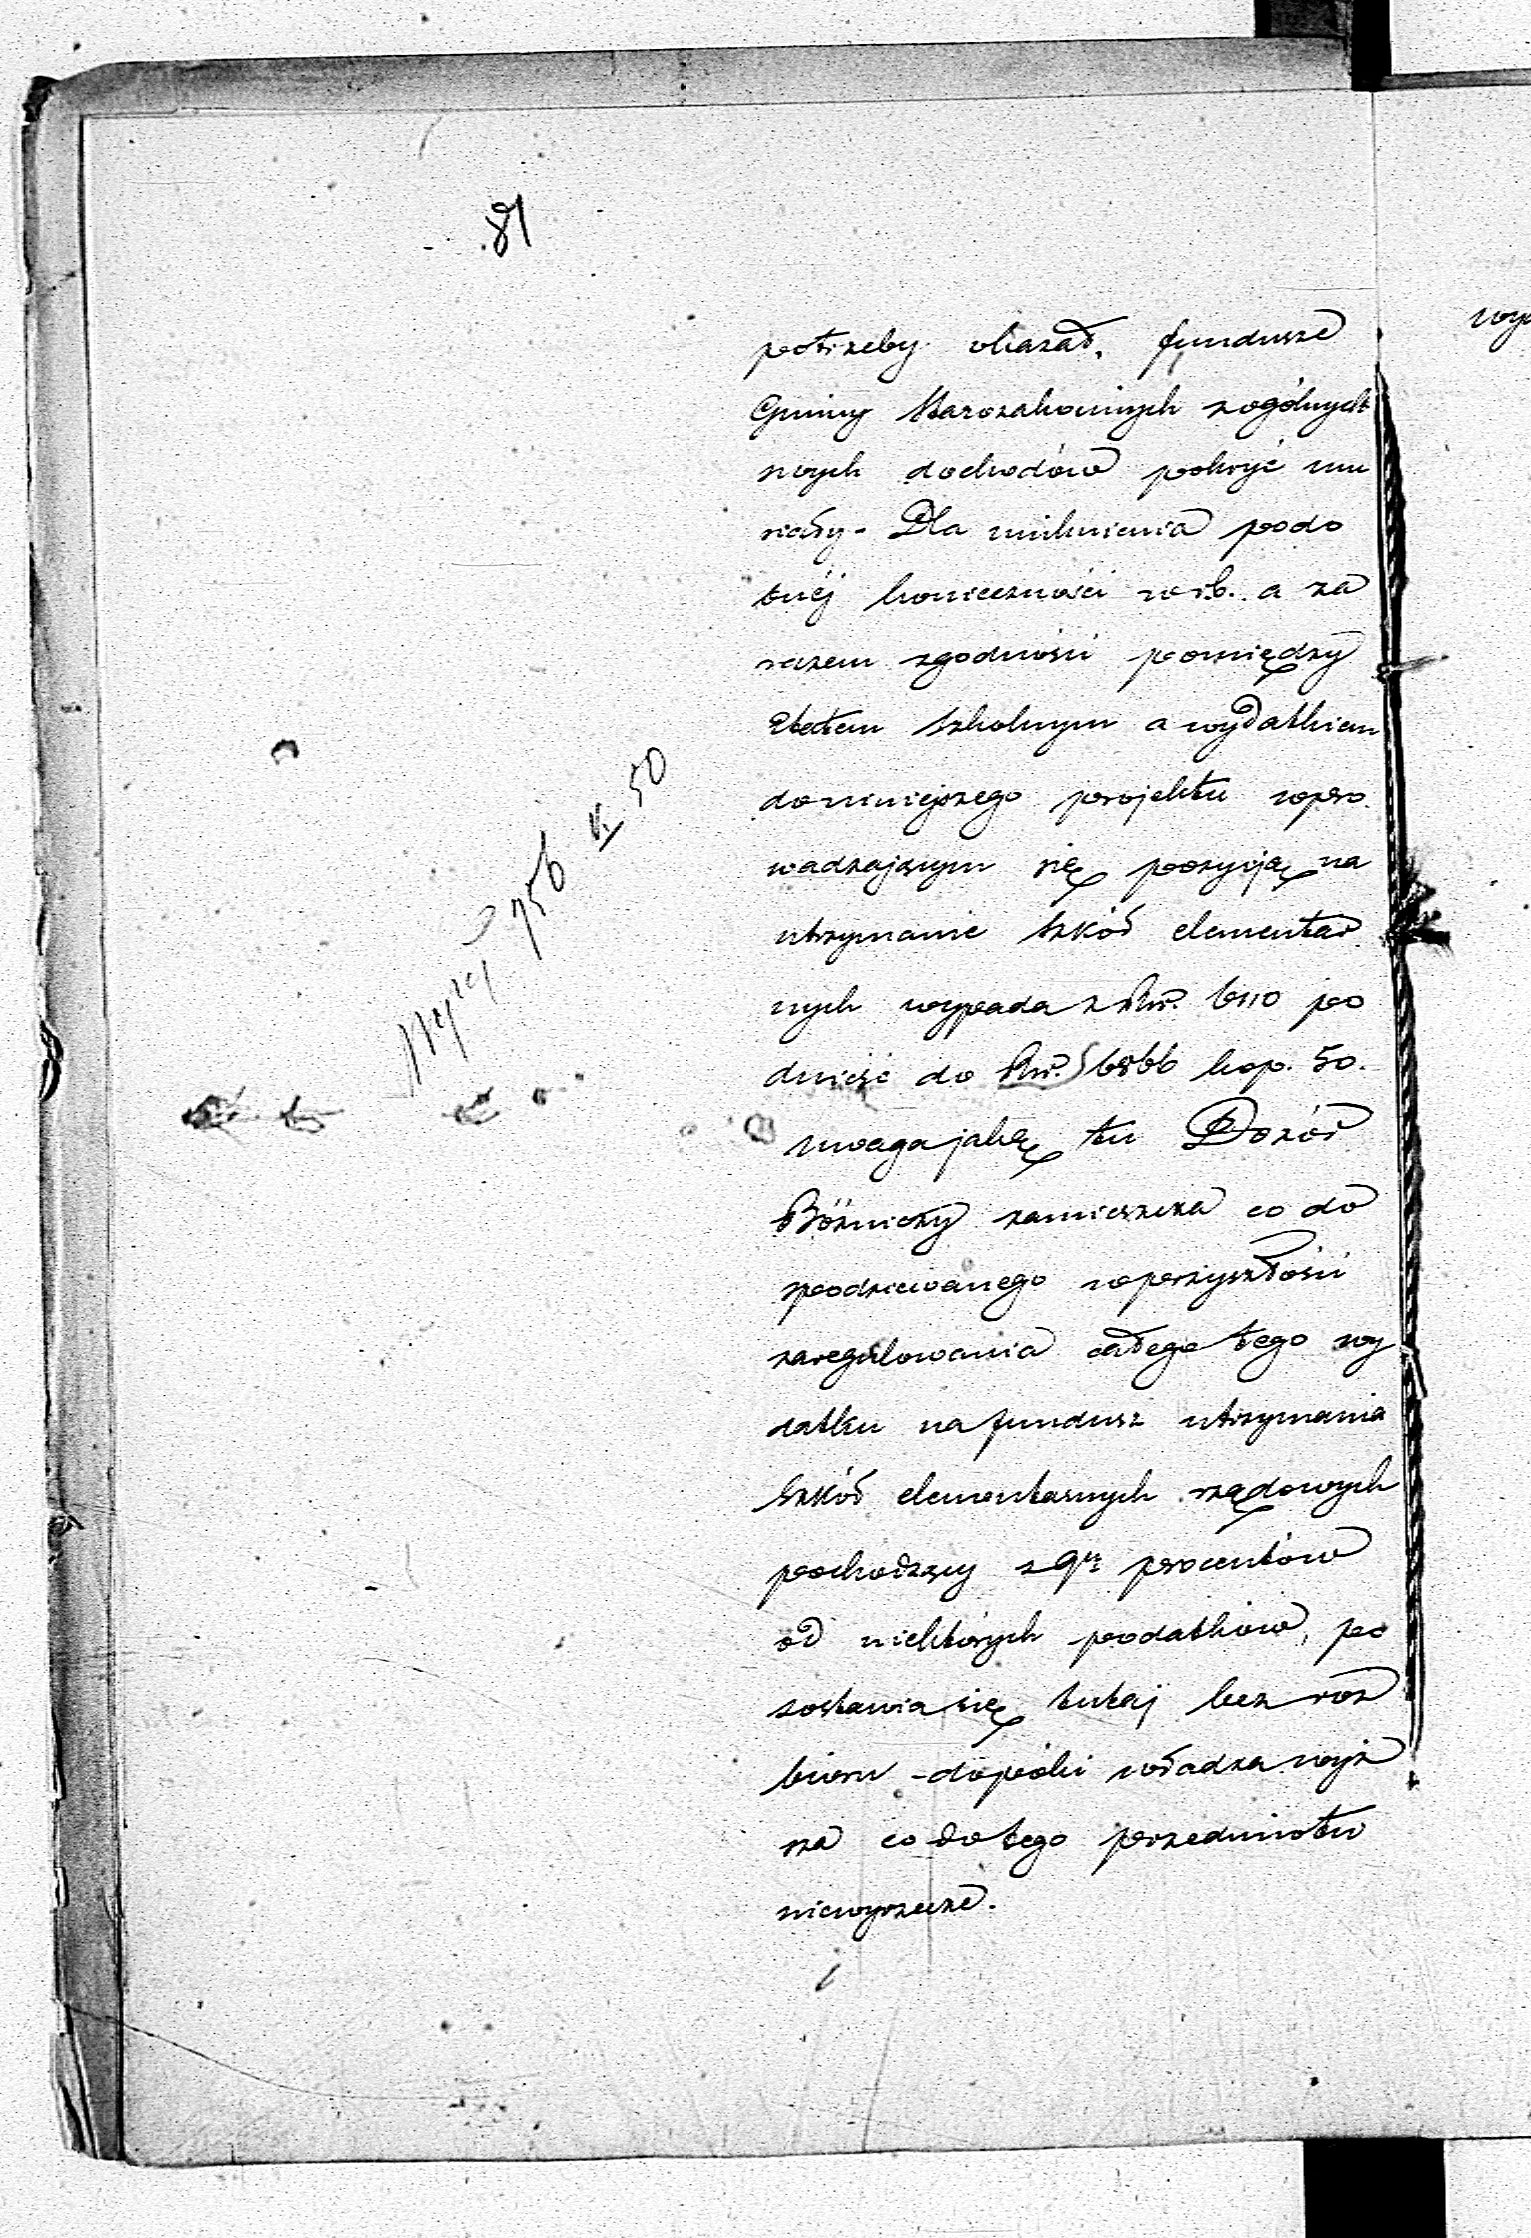 81
potrzeby okazał, fundusze
Gminy Starozakonnych z ogólnych
swych dochodów pokryć mu
siały - Dla uniknienia podo
bnéj konieczności w r.b. a za
razem zgodności pomiędzy
Etatem Szkolnym a wydatkiem
do niniejszego projektu wpro
wadzającym się pozycją na
utrzymanie Szkół elementar
nych wypada z Rsr. 6110 po
dnieść do Rsr. 6866 kop. 50.
Więcej 756 k 50
uwaga jaką tu Dozór
Bóżniczy zamieszcza co do
spodziewanego w przyszłości
zaregulowania całego tego wy
datku na fundusz utrzymania
Szkół elementarnych rządowych
pochodzący z 9ciu procentów
od niektórych podatków, po
zostawia się tutaj bez roz
bioru - dopóki władza wyż
sza co do tego przedmiotu
niewyrzecze.